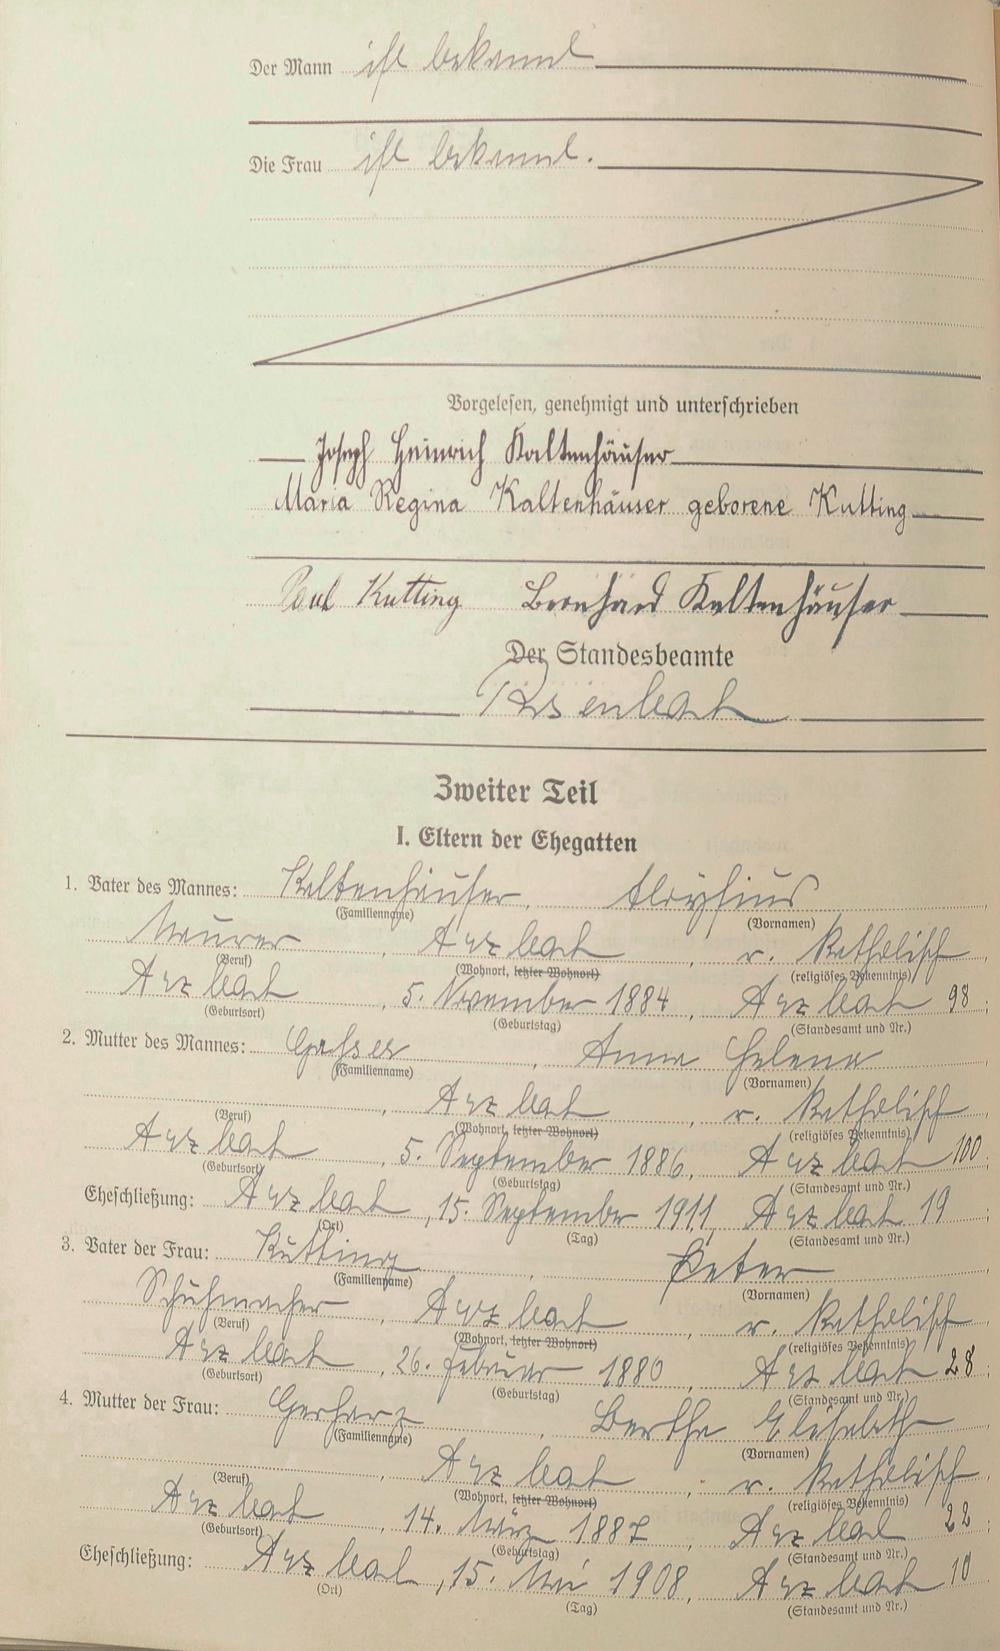 Der Mann ist bekannt
Die Frau ist bekannt.
Vorgelesen, genehmigt und unterschrieben
Joseph Heinrich Kaltenhäuser
Maria Regina Kaltenhäuser geborene Kutting
Paul Kutting Bernhard Kaltenhäuser
Der Standesbeamte
Zweiter Teil
I. Eltern der Ehegatten
1. Vater des Mannes: Kaltenhäuser, Aloysius
(Familienname) (Vornamen)
Maurer, Arzbach, r. katholisch,
(Beruf) (Wohnort, letzter Wohnort) (religiöses Bekenntnis)
Arzbach, 5. November 1884, Arzbach 98;
(Geburtsort) (Geburtstag) (Standesamt und Nr.)
2. Mutter des Mannes: Gasser, Anna Helena
(Familienname) (Vornamen)
, Arzbach, r. katholisch,
(Beruf) (Wohnort, letzter Wohnort) (religiöses Bekenntnis)
Arzbach, 5. September 1886, Arzbach 100;
(Geburtsort) (Geburtstag) (Standesamt und Nr.)
Eheschließung: Arzbach, 15. September 1911, Arzbach 19;
(Ort) (Tag) (Standesamt und Nr.)
3. Vater der Frau: Kutting, Peter
(Familienname) (Vornamen)
Schuhmacher, Arzbach, r. katholisch,
(Beruf) (Wohnort, letzter Wohnort) (religiöses Bekenntnis)
Arzbach, 26. Februar 1880, Arzbach 28;
(Geburtsort) (Geburtstag) (Standesamt und Nr.)
4. Mutter der Frau: Gerharz, Bertha Elisabeth
(Familienname) (Vornamen)
, Arzbach, r. katholisch,
(Beruf) (Wohnort, letzter Wohnort) (religiöses Bekenntnis)
Arzbach, 14. März 1887, Arzbach 22;
(Geburtsort) (Geburtstag) (Standesamt und Nr.)
Eheschließung: Arzbach, 15. Mai 1908, Arzbach 10
(Ort) (Tag) (Standesamt und Nr.)